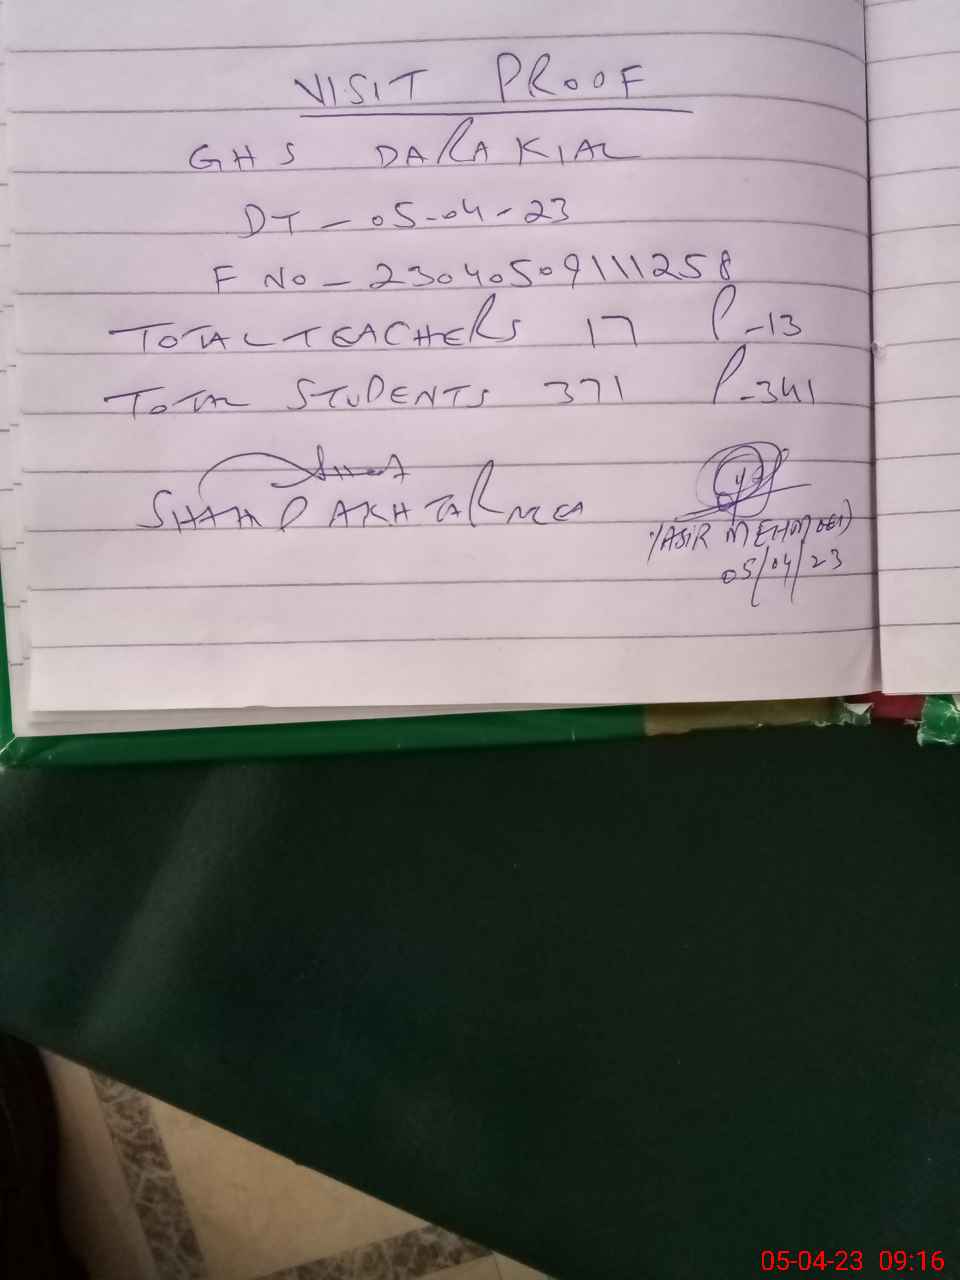 VISIT PROOF
GHS DARAKIAL
DT - 05-04-23
F NO - 23040509111258
TOTAL TEACHERS 17 P-13
TOTAL STUDENTS 371 P-341
SHAHD AKHTAR MEA
YASIR MEHMOOD
05/04/23
05-04-23 09:16